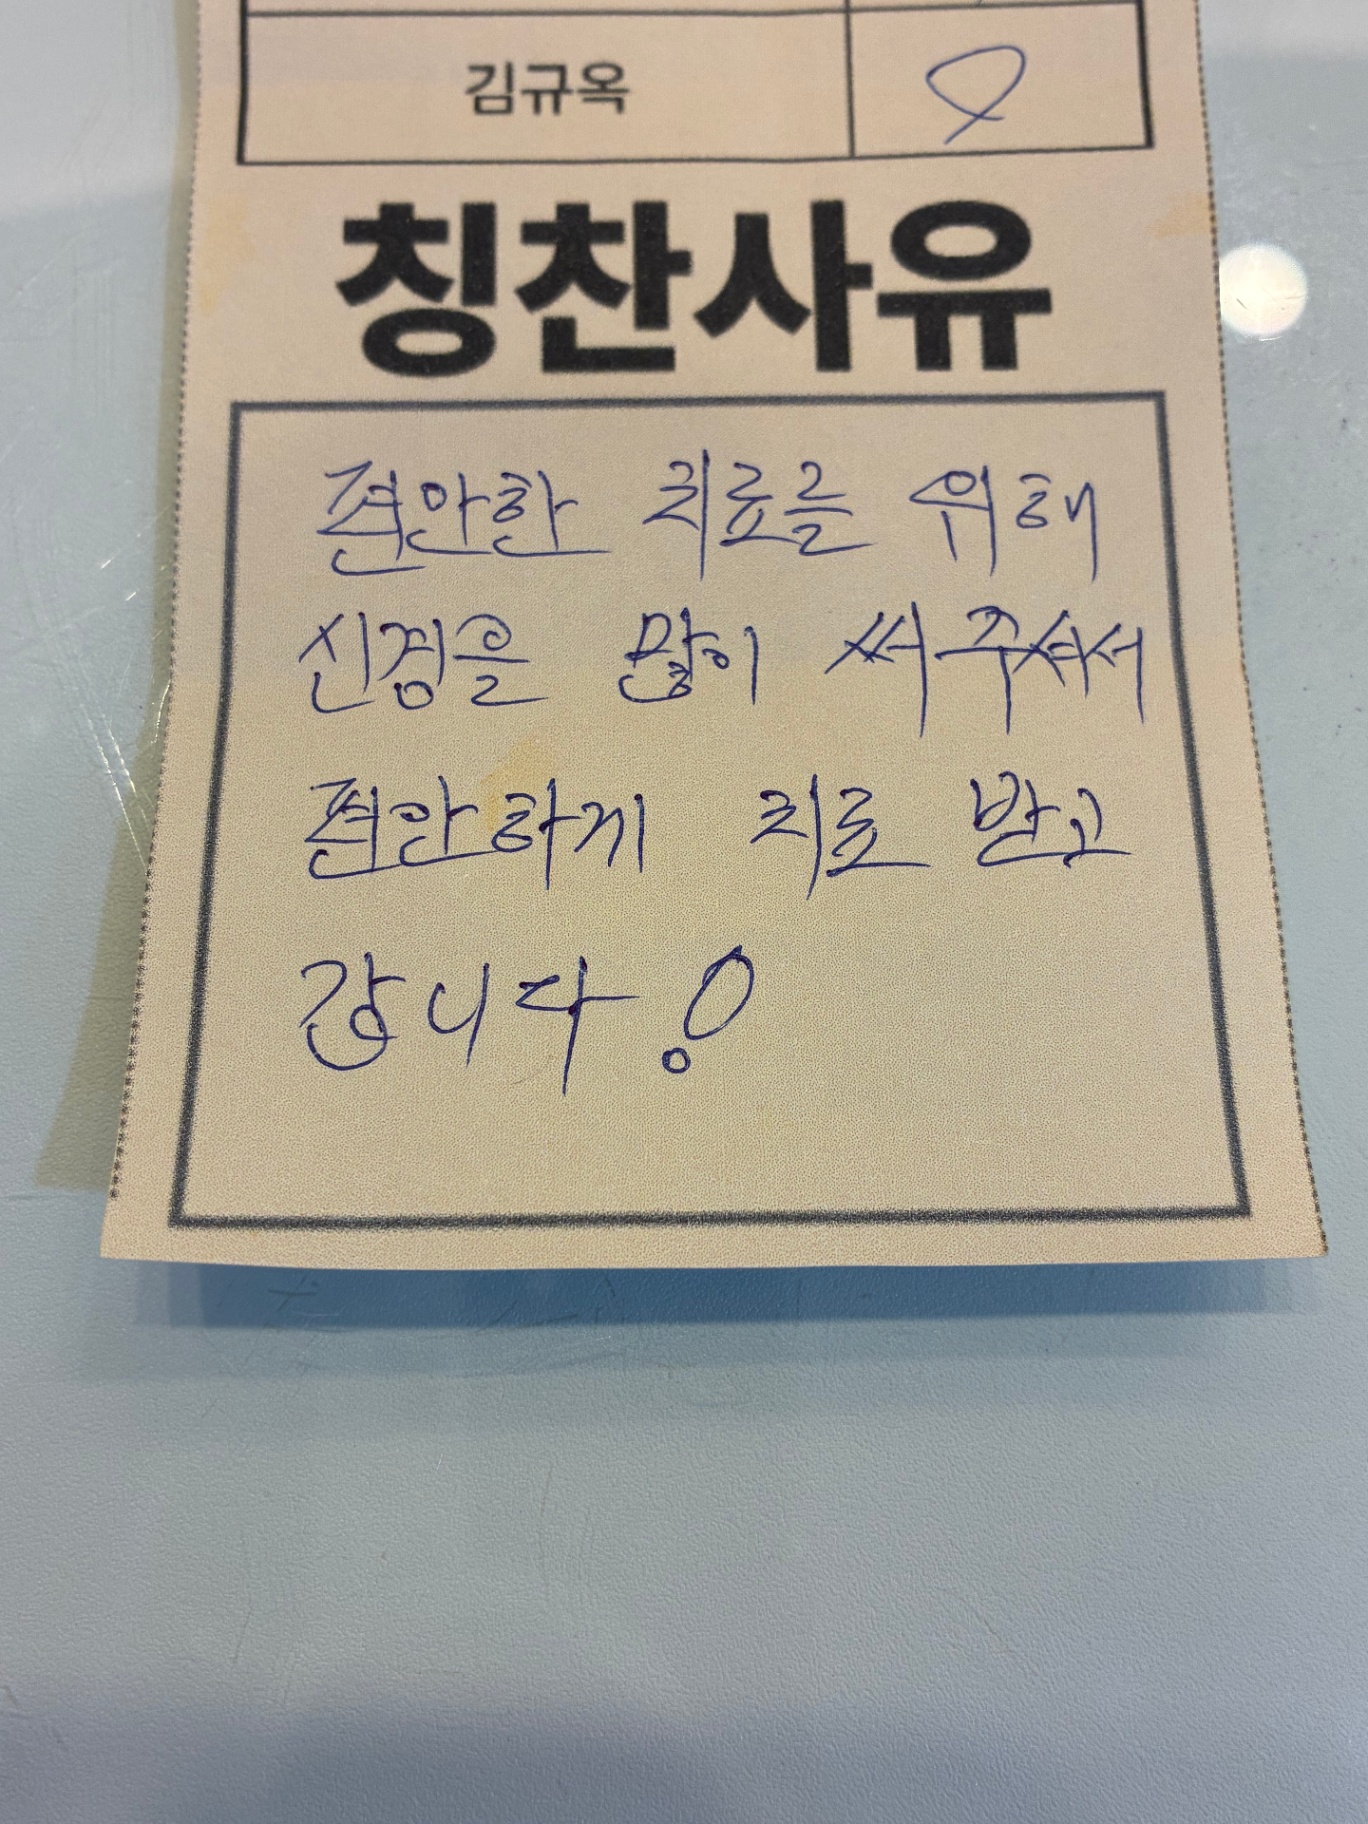 김규옥
칭찬사유
편안한 치료를 위해
신경을 많이 써주셔서
편안하게 치료 받고
갑니다!